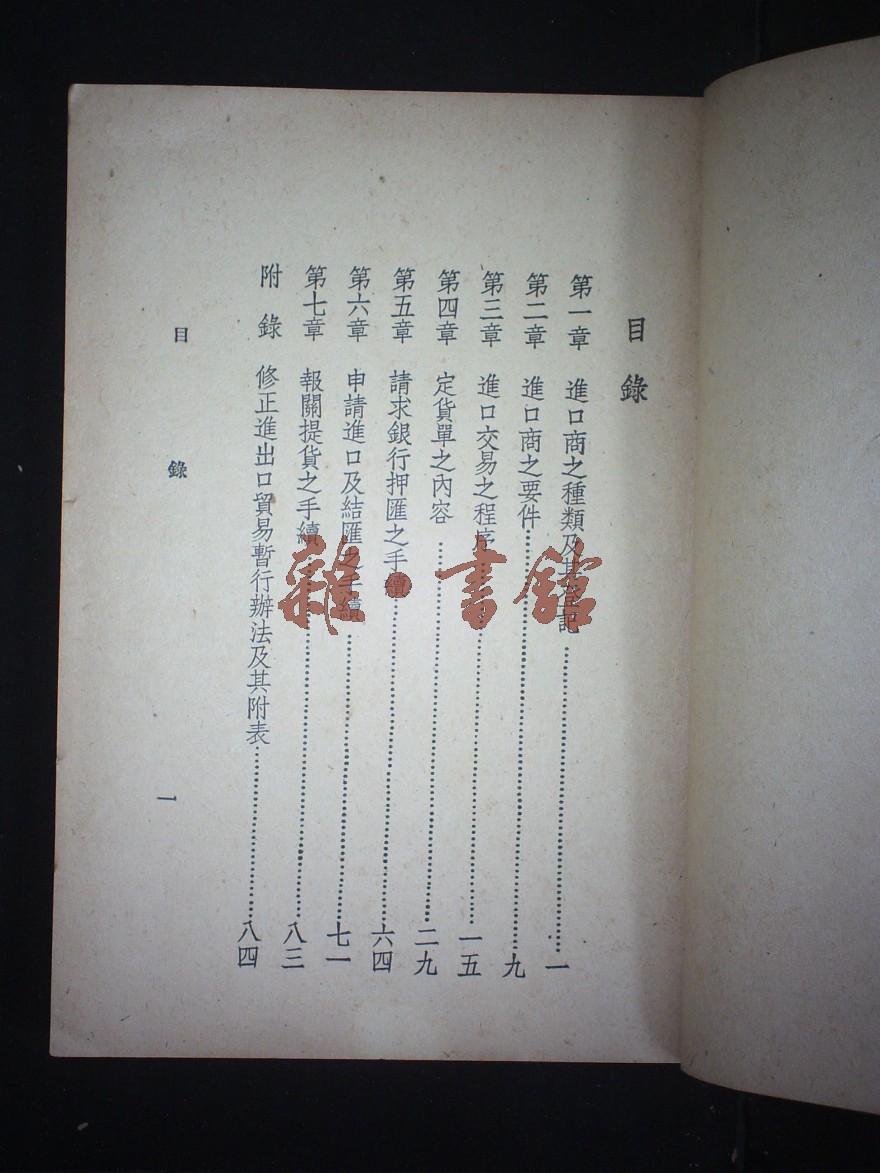 目錄
第一章 進口商之種類及其登記……一
第二章 進口商之要件……九
第三章 進口交易之程序……一五
第四章 定貨單之內容……二九
第五章 請求銀行押匯之手續……六四
第六章 申請進口及結匯之手續……七一
第七章 報關提貨之手續……八三
附錄 修正進出口貿易暫行辦法及其附表……八四
目錄 一
雜·書館